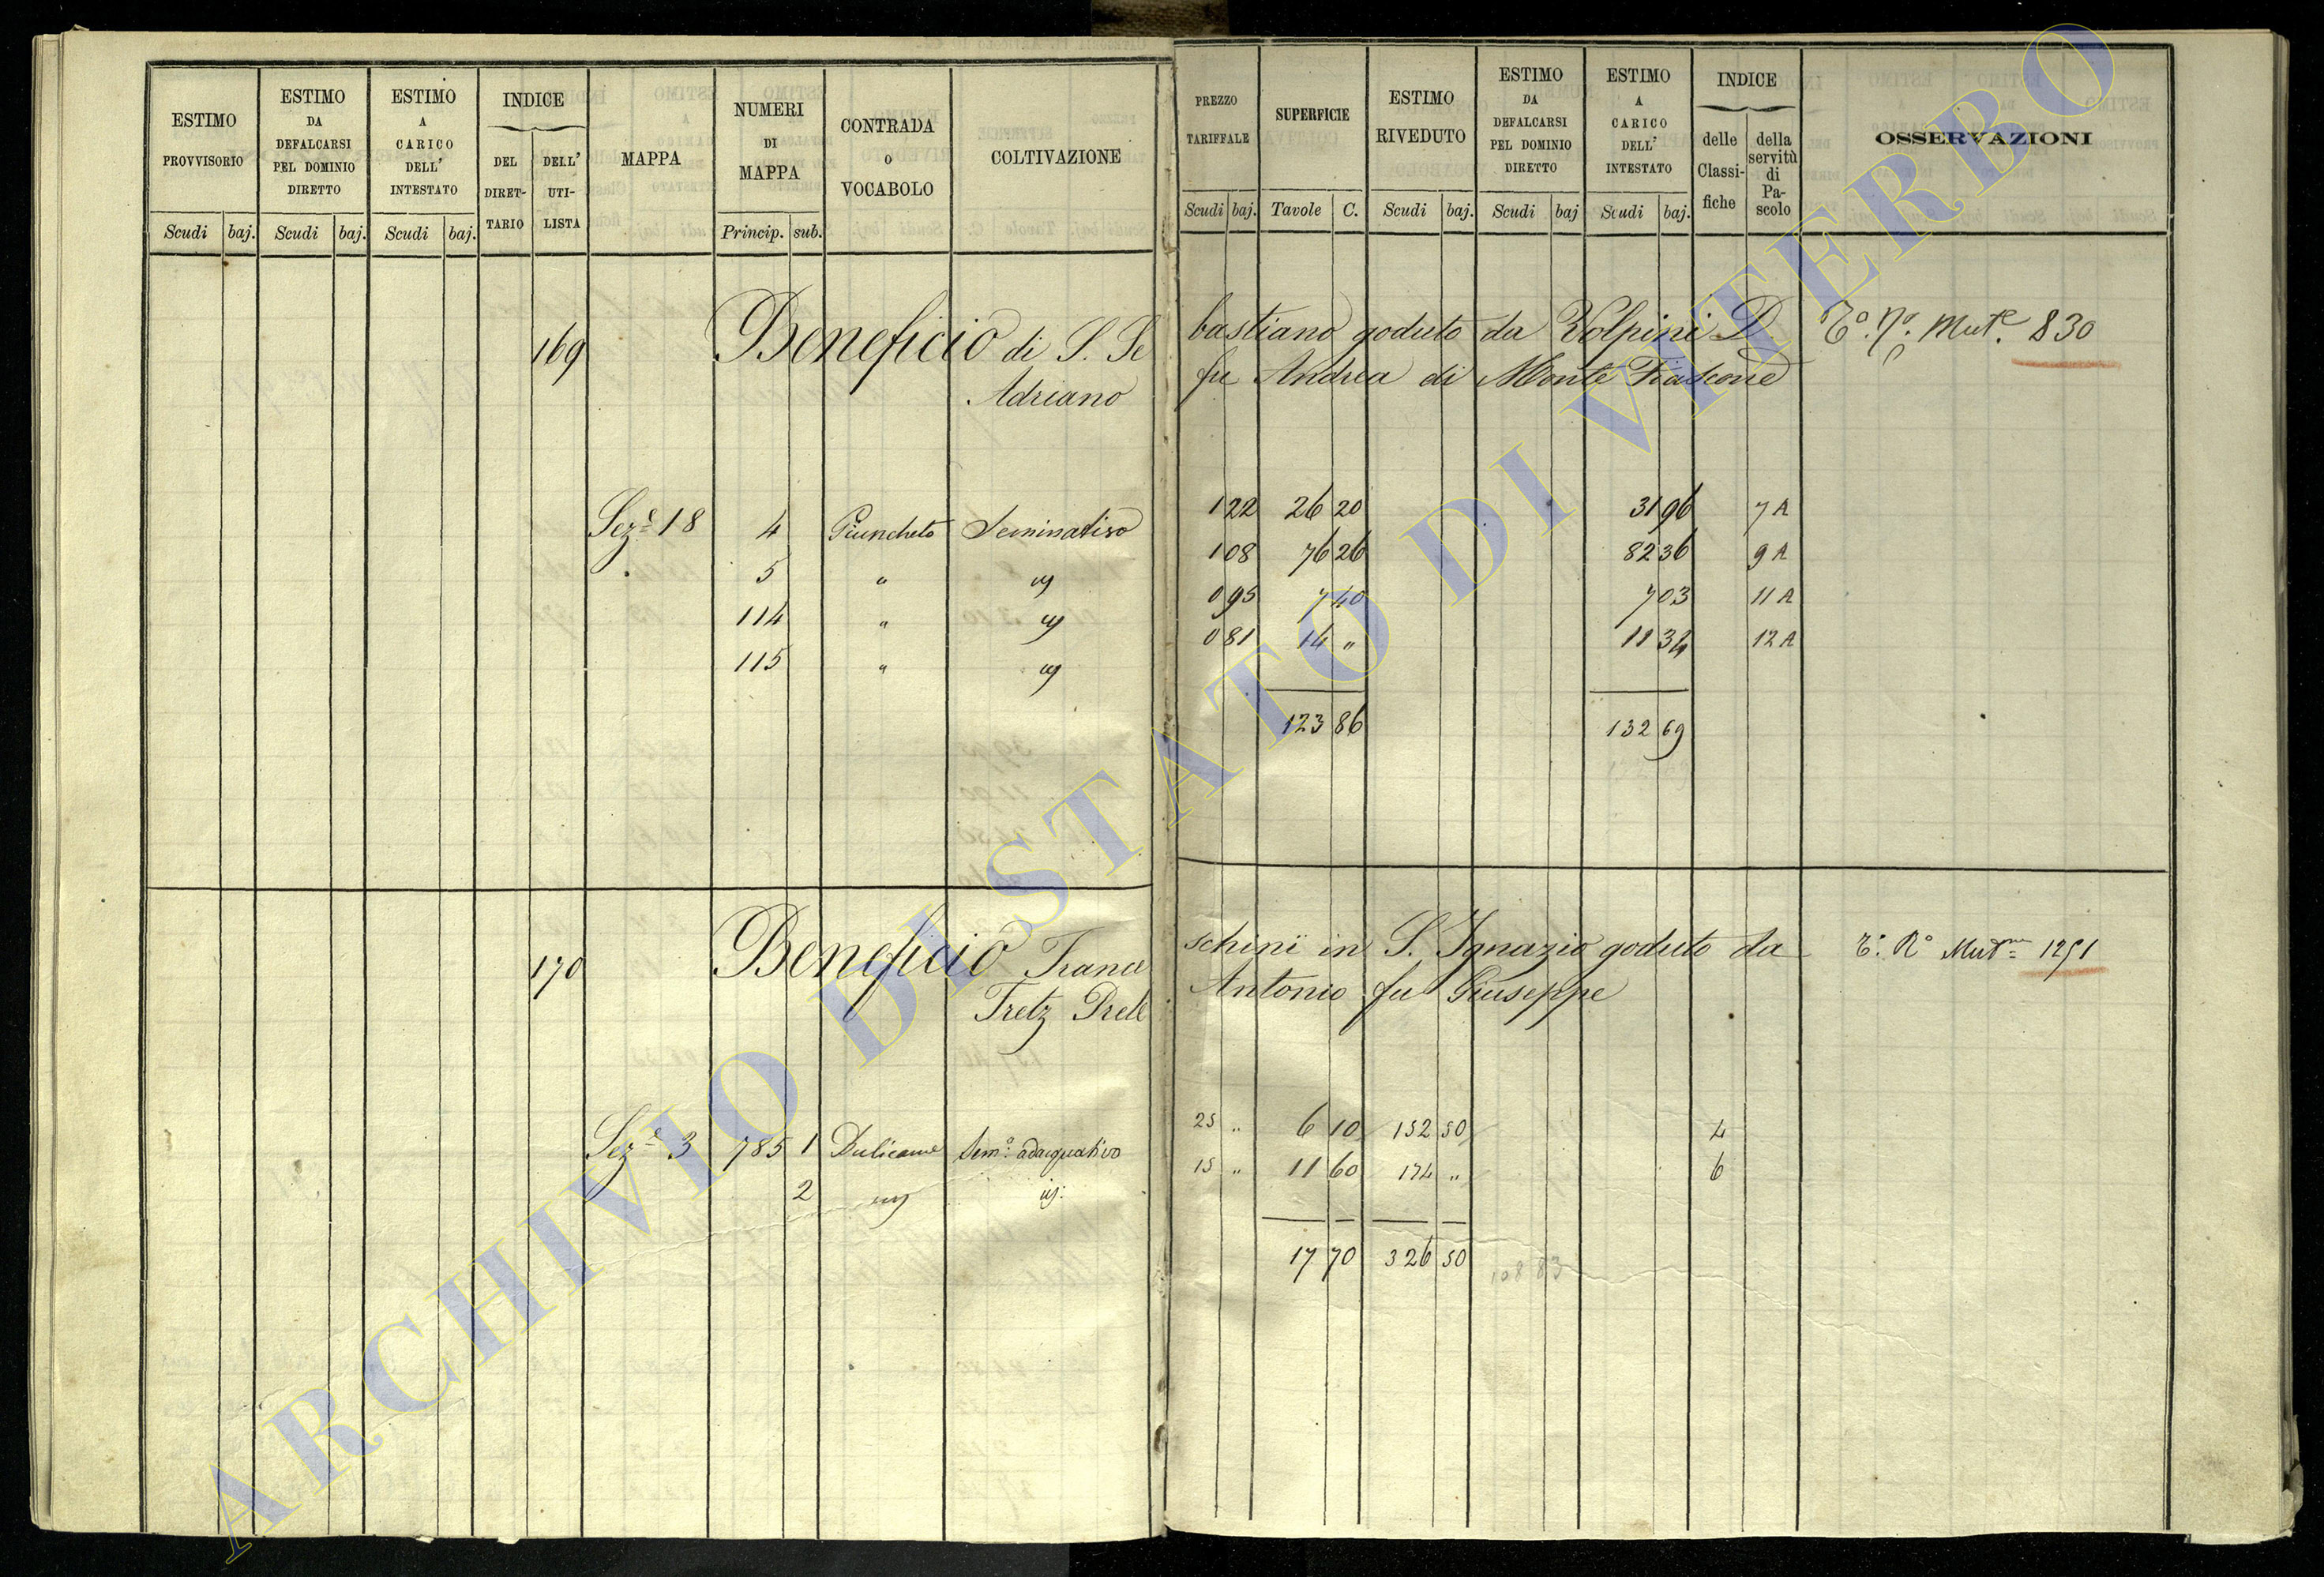 ESTIMO PROVVISORIO
Scudi baj.
ESTIMO DA DEFALCARSI PEL DOMINIO DIRETTO
Scudi baj.
ESTIMO A CARICO DELL' INTESTATO
Scudi baj.
INDICE
DEL DIRET-TARIO
DELL' UTI-LISTA
MAPPA
NUMERI DI MAPPA
Princip. sub.
CONTRADA O VOCABOLO
COLTIVAZIONE
PREZZO TARIFFALE
Scudi baj.
SUPERFICIE
Tavole C.
ESTIMO RIVEDUTO
Scudi baj.
ESTIMO DA DEFALCARSI PEL DOMINIO DIRETTO
Scudi baj
ESTIMO A CARICO DELL' INTESTATO
Scudi baj.
INDICE
delle Classi-fiche
della servitù di Pa-scolo
OSSERVAZIONI
169 Beneficio di S. Se bastiano goduto da Volpini D. Mut.e 830
Adriano fu Andrea di Monte Fiascone
Sez.e 18 4 Giuncheto Seminativo 1 22 26 20 31 96 7 A
5 " 1 08 76 26 82 36 9 A
114 " 0 95 7 40 7 03 11 A
115 " 0 81 14 " 11 34 12 A
123 86 132 69
170 Beneficio France schini in S. Ignazio goduto da 1251
Tretz Prete Antonio fu Giuseppe
Sez.e 3 785 1 Bulicame Sem.o adacquativo 25 " 6 10 152 50 4
2 15 " 11 60 174 " 6
17 70 326 50
108 83
ARCHIVIO DI STATO DI VITERBO